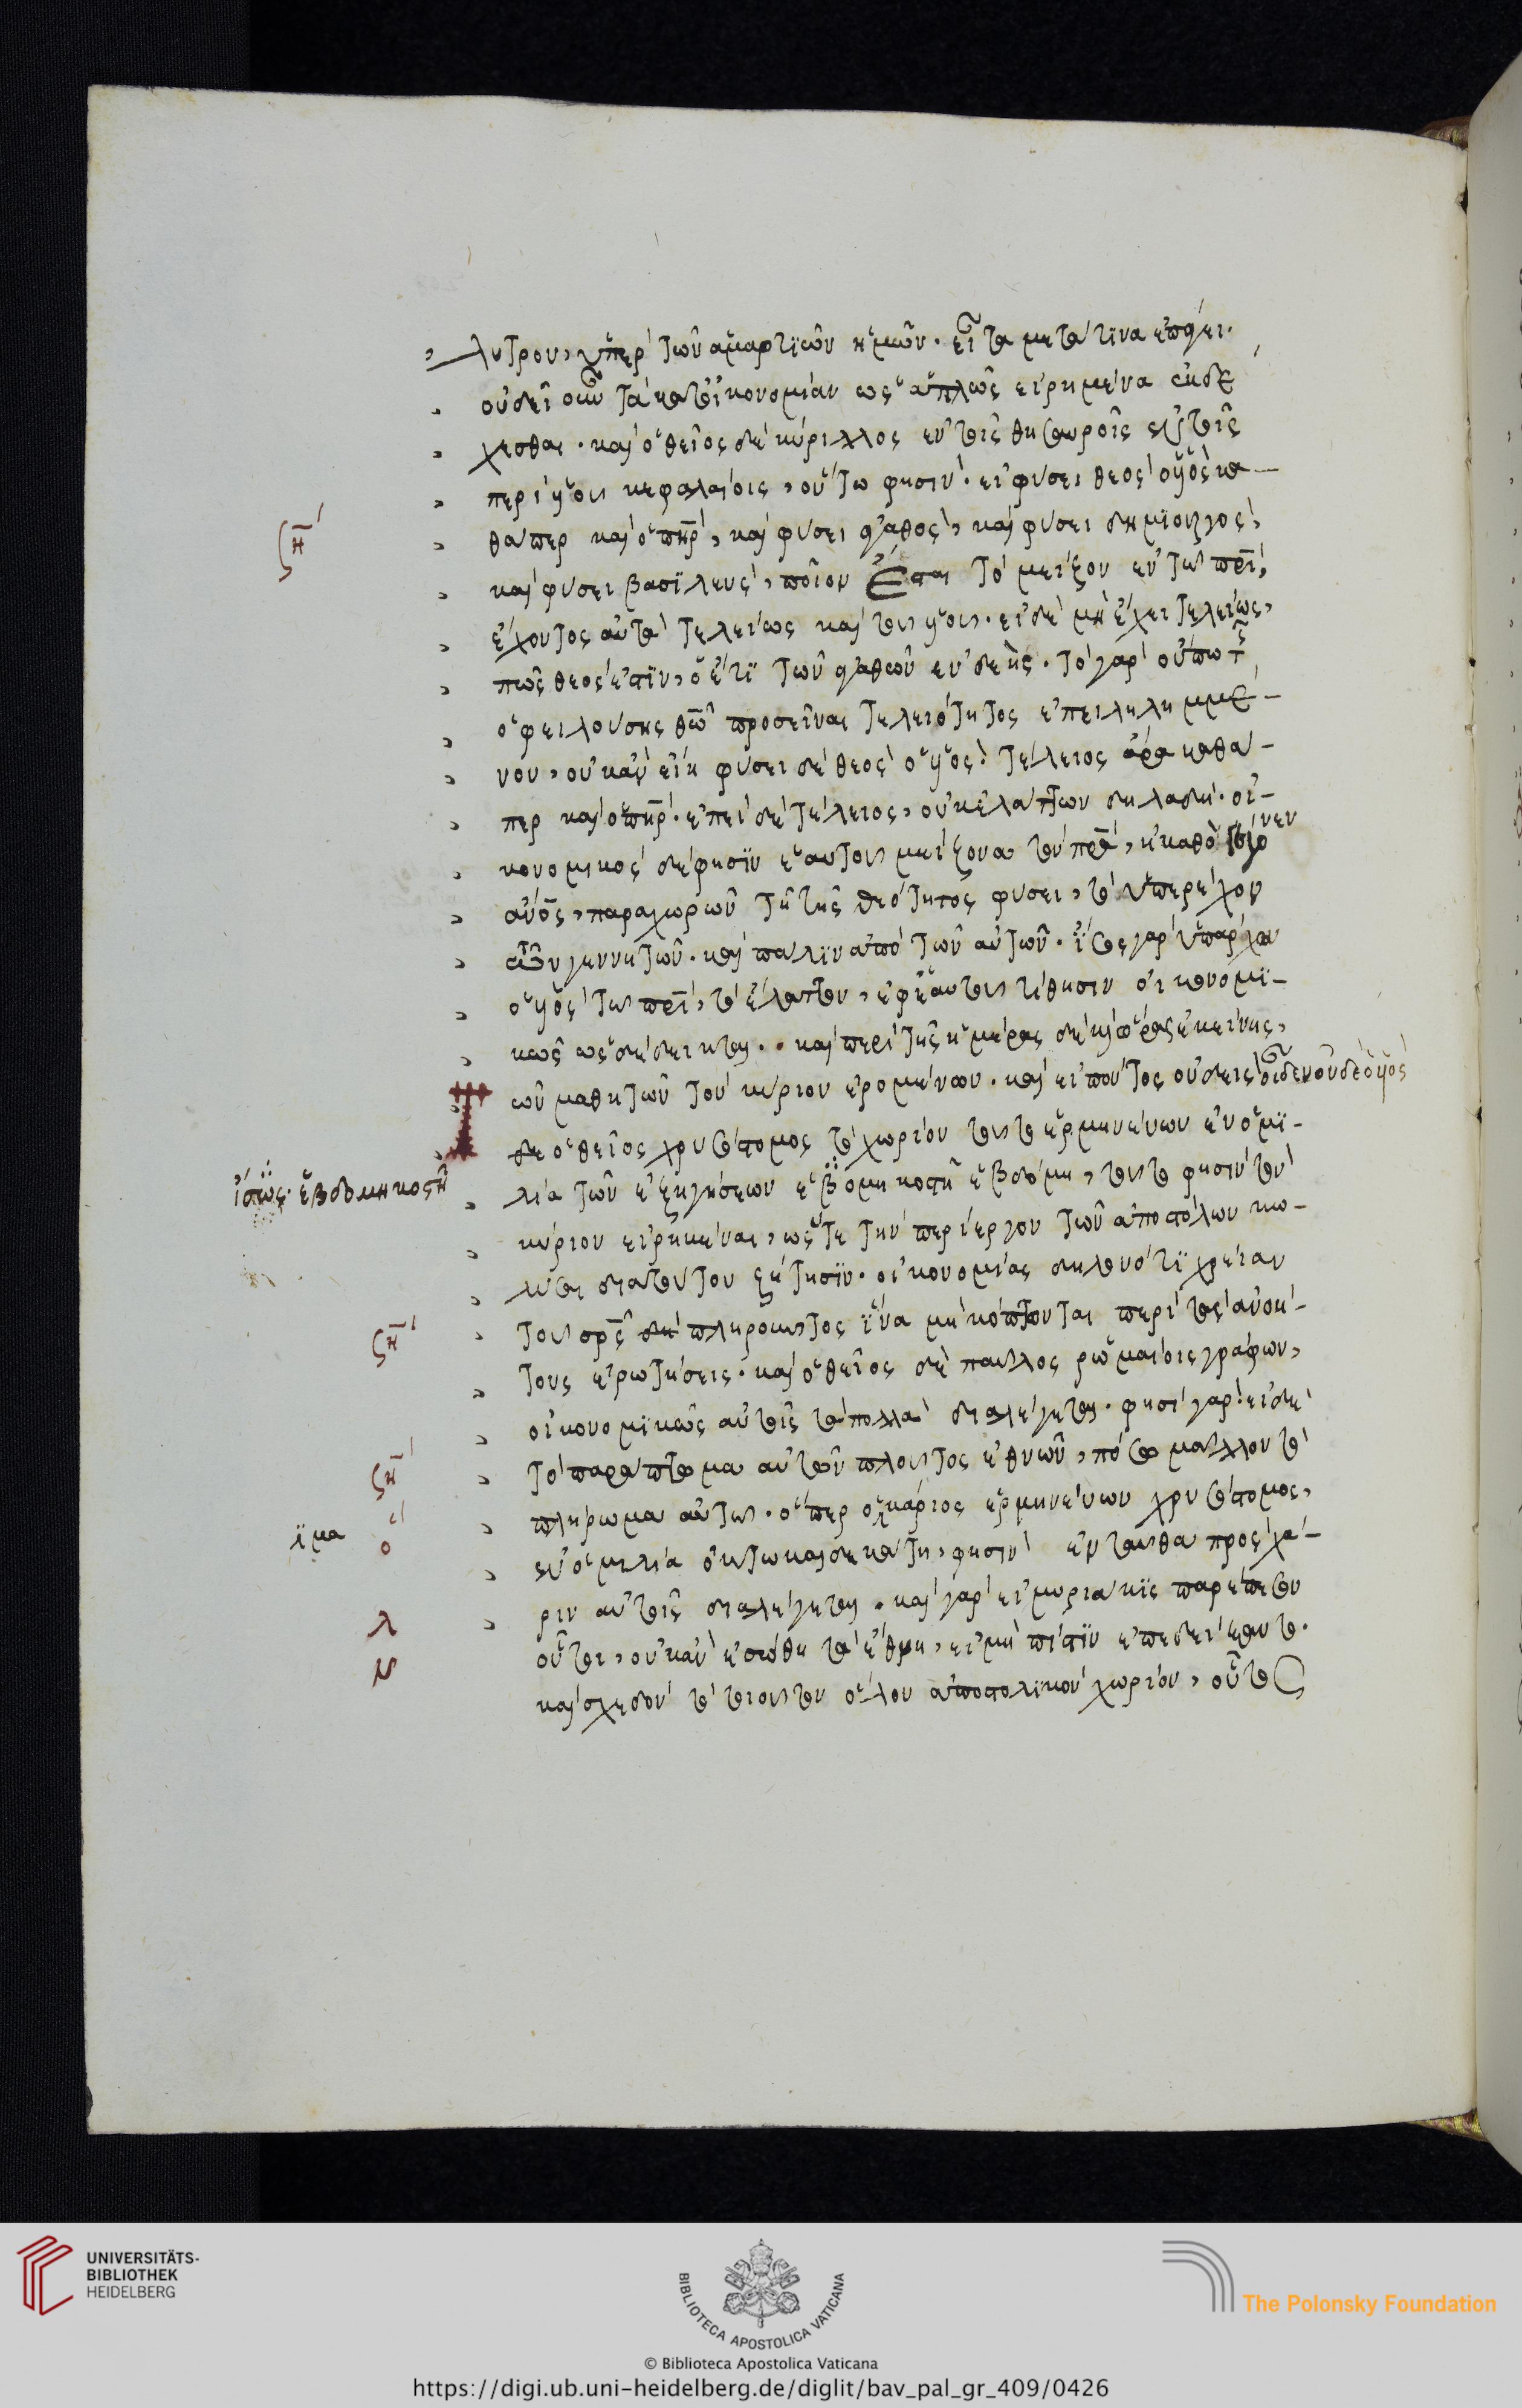 λυτρον, ὑπὲρ τῶν ἁμαρτιῶν ἡμῶν. εἶτα μετά τινα ἐπάγει.
οὐ δεῖ οὖν τὰ κατ' οἰκονομίαν ὡς ἁπλῶς εἰρημένα ἐκδέ
χεσθαι. καὶ ὁ θεῖος δὲ κύριλλος ἐν τοῖς θησαυροῖς ἐν τοῖς
περὶ υἱοῦ κεφαλαίοις, οὕτω φησίν. εἰ φύσει θεὸς ὁ υἱὸς κα-
θάπερ καὶ ὁ πηρ, καὶ φύσει ἀγαθὸς, καὶ φύσει δημιουργὸς,
καὶ φύσει βασιλεὺς, ποῖον ἔσται τὸ μεῖζον ἐν τῶ πρι,
ἔχοντος αὐτὰ τελείως καὶ τοῦ υἱοῦ. εἰ δὲ μὴ ἔχει τελείως,
πῶς θεός ἐστιν, ὁ ἔτι τῶν ἀγαθῶν ἐνδεής. τὸ γὰρ οὔπω τῆς
ὀφειλούσης θῶ προσεῖναι τελειότητος ἐπειλημμέ-
νον, οὐκ ἂν εἴη φύσει δὲ θεὸς ὁ υἱός. τέλειος ἄρα καθά-
περ καὶ ὁ πηρ. ἐπεὶ δὲ τέλειος, οὐκ ἐλάττων δηλαδή. οἰ-
κονομικὸς δέ φησιν ἑαυτοῦ μείζονα τὸν πρα, ἢ καθὸ γέγονεν
ανος, παραχωρῶν τῆ τῆς θεότητος φύσει, τὸ ὑπερέχον
τῶν γεννητῶν. καὶ πάλιν ἀπὸ τῶν αὐτῶν. ἴσος γὰρ ὑπάρχων
ὁ υἱὸς τῶ πρι, τὸ ἔλαττον, ἐφ' ἑαυτοῦ τίθησιν οἰκονομι-
κῶς ὡς δέδεικται. καὶ περὶ τῆς ἡμέρας δὲ καὶ ὥρας ἐκείνης,
τῶν μαθητῶν τὸν κύριον ἐρομένων. καὶ εἰπόντος οὐδεὶς οἶδεν οὐδὲ ὁ υἱὸς
δὲ ὁ θεῖος χρυσόστομος τὸ χωρίον τοῦτο ἑρμηνεύων ἐν ὁμι-
λία τῶν ἐξηγήσεων ἑβδομηκοστῆ ἑβδόμη, τοῦτο φησὶν τὸν
κύριον εἰρηκέναι, ὥστε τὴν περίεργον τῶν ἀποστόλων κω-
λῦσαι διὰ τούτου ζήτησιν. οἰκονομίας δηλονότι χρείαν
τοῦ πληροῦντος ἵνα μὴ κόπτονται περὶ τὰς ἀνοή-
τους ἐρωτήσεις. καὶ ὁ θεῖος δὲ παῦλος ῥωμαίοις γράφων,
οἰκονομικῶς αὐτοῖς τὰ πολλὰ διαλέγεται. φησὶ γάρ. εἰ δὲ
τὸ παράπτωμα αὐτῶν πλοῦτος ἐθνῶν, πόσω μᾶλλον τὸ
πλήρωμα αὐτῶν. ὅπερ ὁ μακάριος ἑρμηνεύων χρυσόστομος,
ἐν ὁμιλία ὀκτωκαιδεκάτη, φησὶν ἐνταῦθα πρὸς χά-
ριν αὐτοῖς διαλέγεται. καὶ γὰρ εἰ μυριάκις παρέπεσον
οὗτοι, οὐκ ἂν ἐσώθη τὰ ἔθνη, εἰ μὴ πίστιν ἐπεδείξαντο.
καὶ σχεδὸν τὸ τοιοῦτον ὅλον ἀποστολικὸν χωρίον, οὕτως
ἴσως ἑβδομηκοστῆ
ση
ση
ση
UNIVERSITÄTS-
BIBLIOTHEK
HEIDELBERG
BIBLIOTECA APOSTOLICA VATICANA
The Polonsky Foundation
© Biblioteca Apostolica Vaticana
https://digi.ub.uni-heidelberg.de/diglit/bav_pal_gr_409/0426